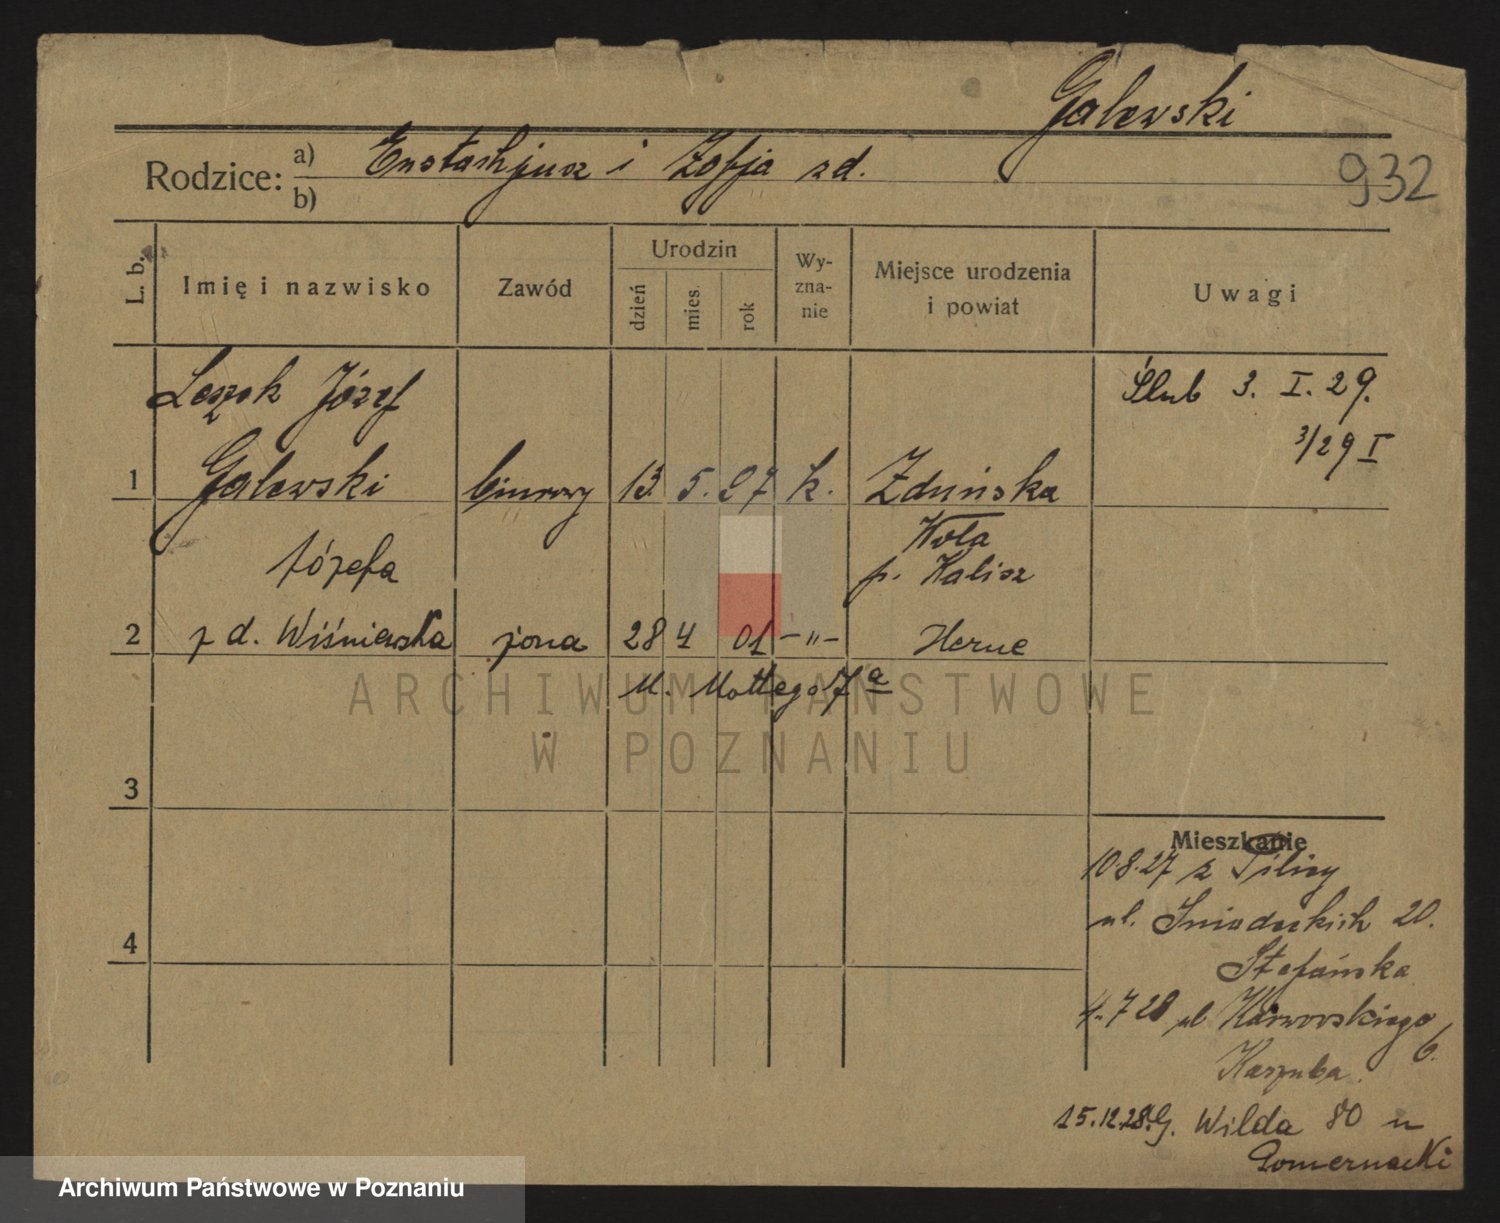 Galewski
Rodzice: a) Eustachjusz i Zofja zd.
b)
932
L. b.
Imię i nazwisko
Zawód
Urodzin
dzień
mies.
rok
Wy-
zna-
nie
Miejsce urodzenia
i powiat
Uwagi
Leszek Józef
Ślub 3. I. 29.
3/29 I
1 Galewski biurowy 13. 5. 27 k. Zduńska
Wola
p. Kalisz
Józefa
2 z d. Wiśniewska żona 28 4 01 -"- Herne
M. Mottego 7a
ARCHIWUM PAŃSTWOWE
W POZNANIU
3
Mieszkanie
10.8.27 z
ul. Śniadeckich 20.
4
Stefańska
4.7 28 ul Karwowskiego
6.
Kaszuba.
15.12.28. G. Wilda 80 u
Archiwum Państwowe w Poznaniu